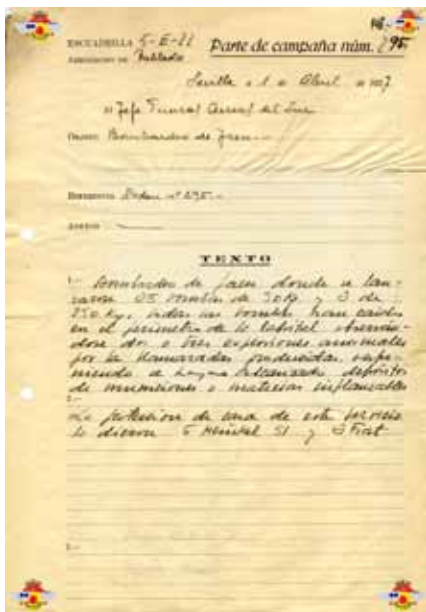 ESCUADRILLA 5-E-22 Parte de campaña núm. 295.
AERODROMO DE Tablada
Sevilla a 1 de Abril de 1937
Jefe Aereo del Sur
OBJETO: Bombardeo de Jaen
REFERENCIA: Orden nº 295.-
ANEXOS
TEXTO
1.- Bombardeo de Jaen donde se lan-
zaron 25 bombas de 50 kg y 3 de
250 kg. todas las bombas han caido
en el perimetro de la Capital observan-
dose dos o tres explosiones anormales
por las llamaradas producidas, supo-
niendo se haya alcanzado depósitos
de municiones o materias inflamables
2.-
La protesion de caza de este servicio
la dieron 5 Heinkel 51 y 3 Fiat
3.-